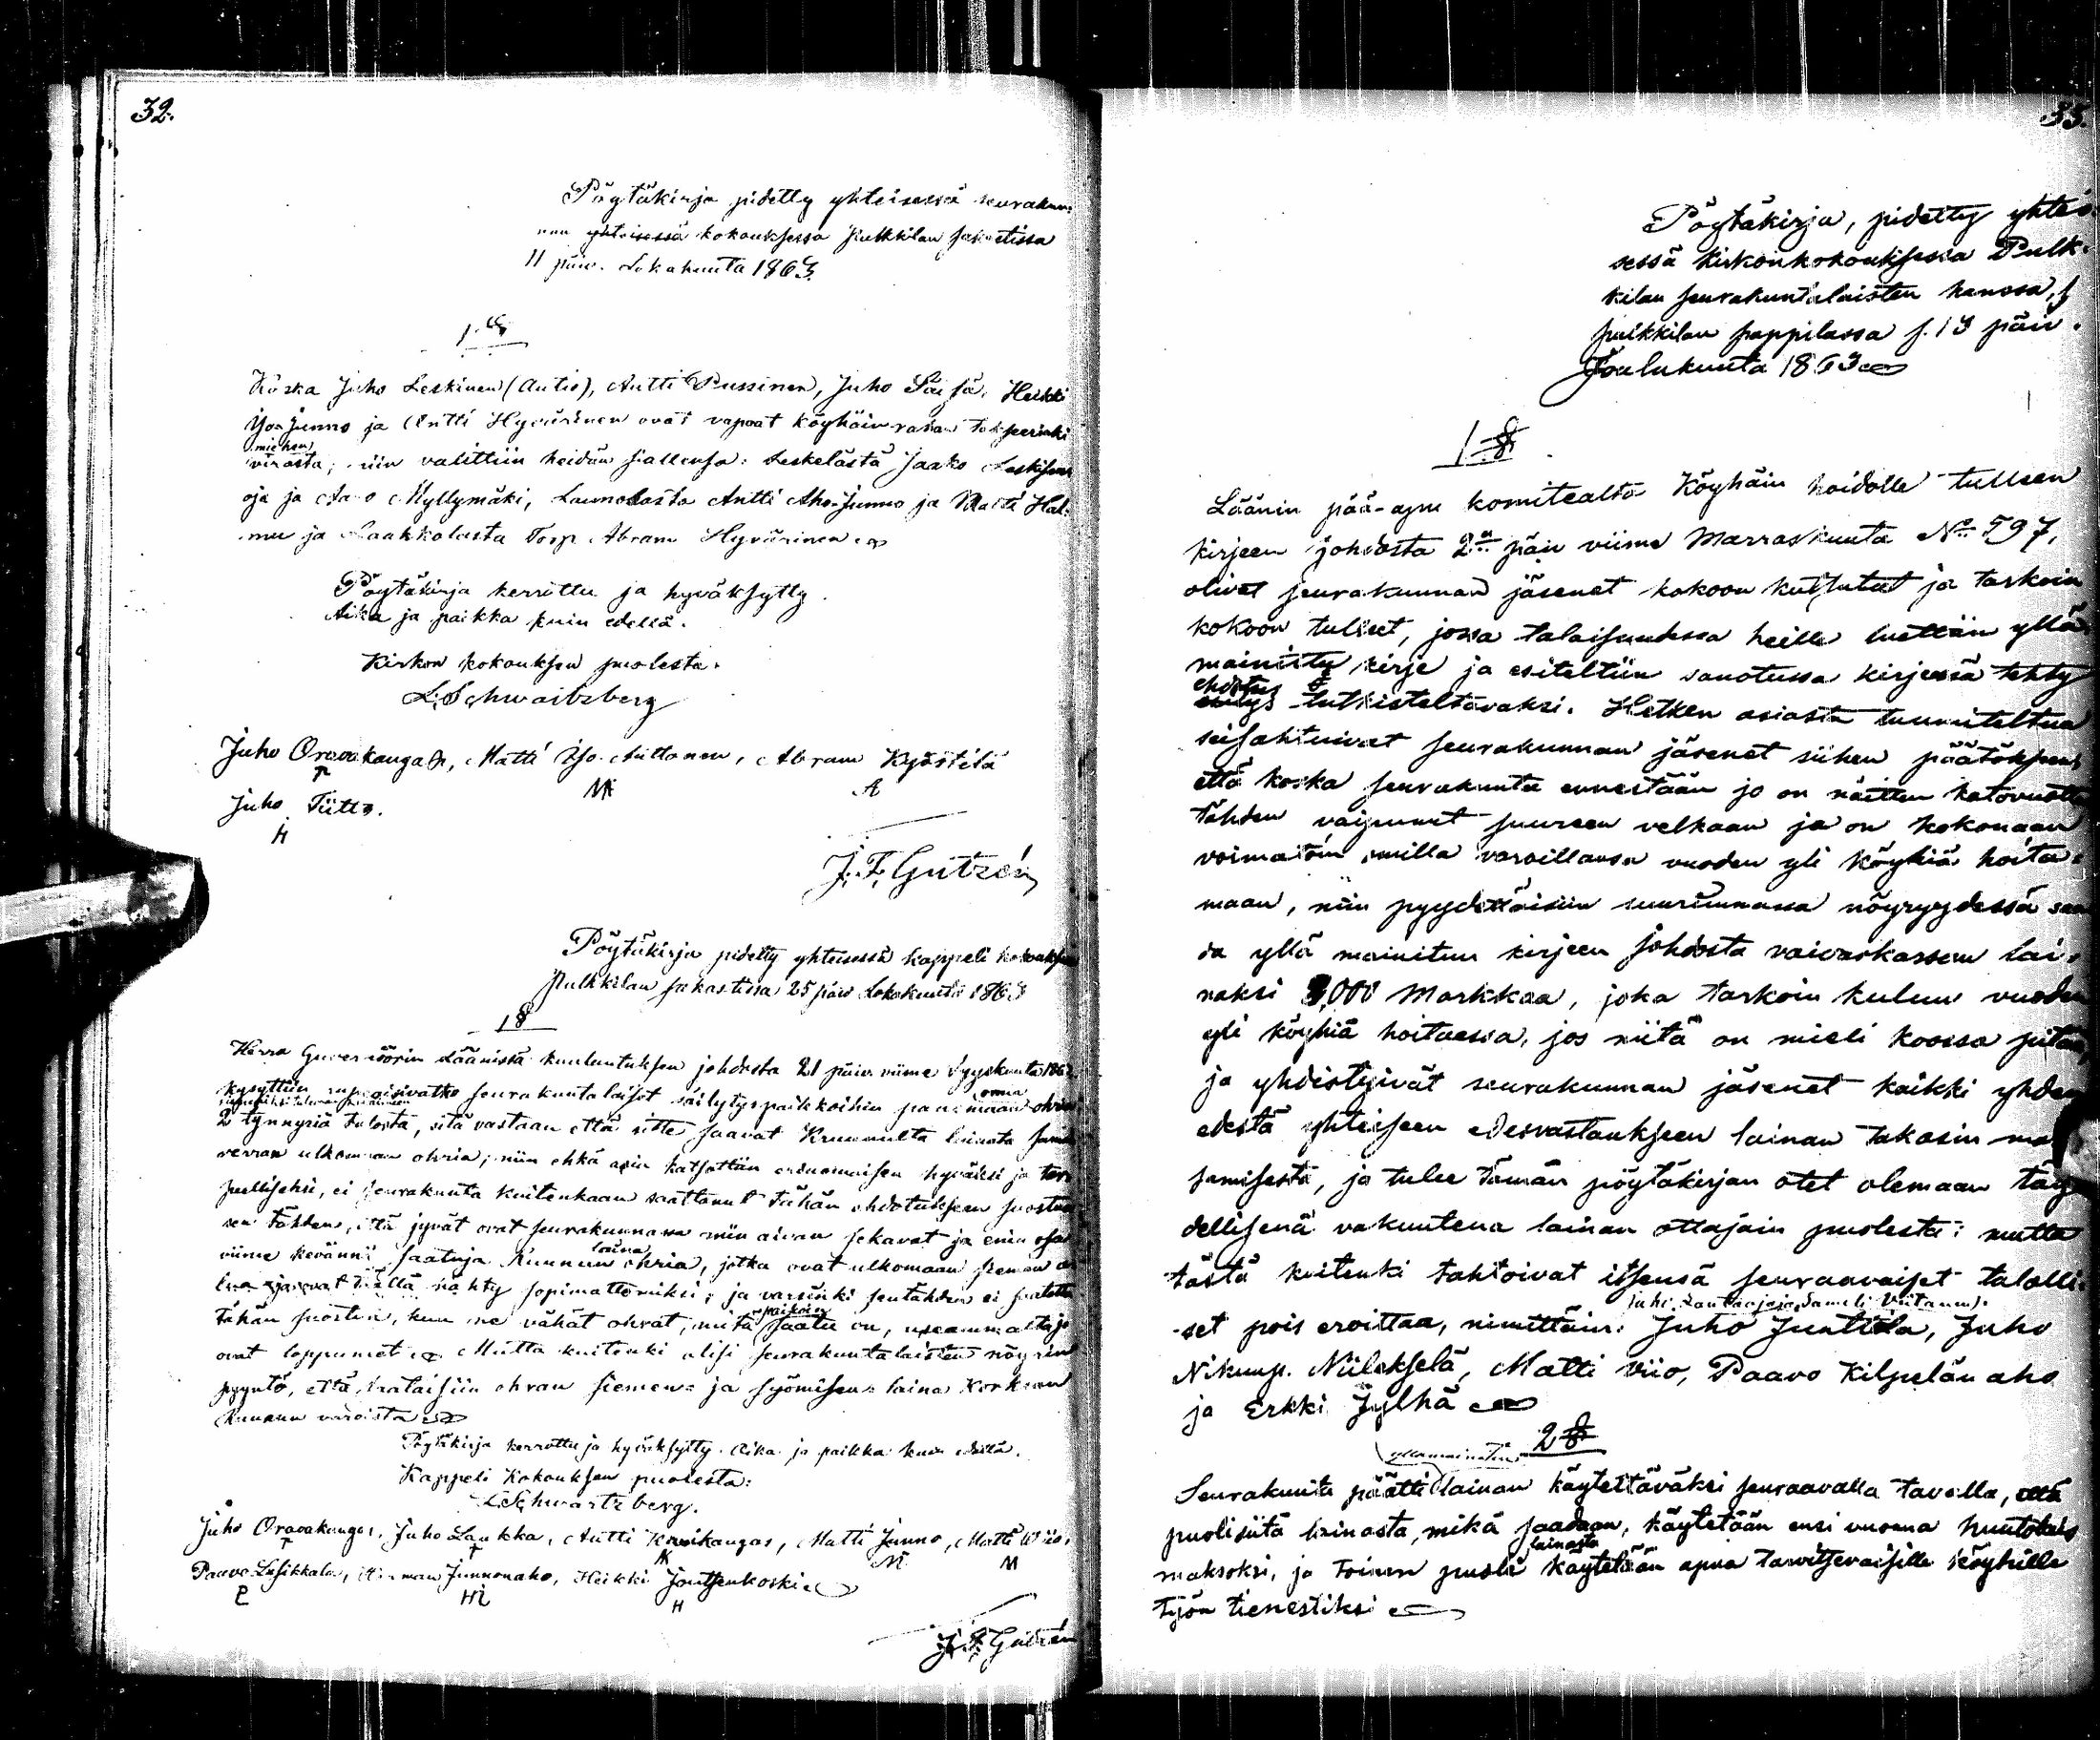 32.
Pöytäkirja pidetty yhteisessä seurakun-
nan yhteisessä kokouksessa Pulkkilan sakastissa
11 päiv. Lokakuuta 1863.
1. §
Koska Juho Leskinen (Autio), Antti Pussinen, Juho Heikki
Junno ja Antti Hyvärinen ovat vapaat köyhäin rahan
miehen
virasta, niin valittiin heidän siallensa: Leskelästä Jaako
oja ja Myllymäki, Launolasta Antti Aho-Junno ja Matti Hal-
mu ja Laakkolasta Torp. Abram Hyvärinen
Pöytäkirja kerrottu ja hyväksytty.
Aika ja paikka kuin edellä.
Kirkon kokouksen puolesta.
L. Schwartzberg
Juho Oravakangas, Matti Iso-Aittonen, Abram Kyöstilä
M A
Juho Tiitto.
H
J. F. Gutzén
Pöytäkirja pidetty yhteisessä kappeli kokouksessa
Pulkkilan sakastissa 25 päiv Lokakuuta 1863
1 §
Herra Guvernöörin Läänissä kuulutuksen johdosta 21 päiv. viime Syyskuuta 1863
kysyttiin, rupeisivatko seurakuntalaiset säilytyspaikkoihin panemaan omia ohria
2 tynnyriä talosta, sitä vastaan että sitte saavat Kruunulta lainata saman
verran ulkomaan ohria; niin ehkä asia katsottiin erinomaisen hyväksi ja tar-
peelliseksi, ei seurakunta kuitenkaan saattanut tähän ehdotukseen suostua
sen tähden, että jyvät ovat seurakunnassa niin aivan sekavat ja enin osa
viime kevännä saatuja Kunnun laina ohria, jotka ovat ulkomaan siemen
ja ovat täällä nähty sopimattomiksi; ja varsinki sentähden ei saatettu
tähän suostua, kun ne vähät ohrat, mitä paikoin saatu on, useammalta jo
ovat loppuneet. Mutta kuitenki olisi seurakuntalaisten nöyrin
pyyntö, että lainataisiin ohran siemen- ja syömisen- laina Korkean
Kruunun varoista
Pöytäkirja kerrottu ja hyväksytty. Aika ja paikka kuin edellä.
Kappeli Kokouksen puolesta:
L. Schwartzberg.
Juho Oravakangas, Juho Laukka, Antti Kravikangas, Matti Junno, Matti Wiio,
M M
Paavo Lesikkala, Herman Junnonaho, Heikki Joutsenkoski
P H
J. F. Gutzén
33.
Pöytäkirja, pidetty yhtei-
sessä kirkonkokouksessa Pulk-
kilan seurakuntalaisten kanssa,
Pulkkilan pappilassa p. 13 päiv.
Joulukuuta 1863
1 §
Läänin pää-apu komitealta Köyhäin hoidolle tulleen
kirjeen johdosta 2:n päiv viime Marraskuuta No 597,
olivat seurakunnan jäsenet kokoon kutsutut ja tarkoin
kokoon tulleet, jossa talaisuudessa heille luettiin yllä-
mainittu kirje ja esiteltiin sanotussa kirjeessä tehty
ehdotus
esitys tutkisteltavaksi. Hetken asiasta tuumiteltua
seisahtuivat seurakunnan jäsenet siihen päätökseen,
että koska seurakunta ennestään jo on näitten katovuotten
tähden vaipunut suureen velkaan ja on kokonaan
voimatoin omilla varoillansa vuoden yli köyhiä hoita-
maan, niin pyydettäisiin suurimmassa nöyryydessä saa-
da yllä mainitun kirjeen johdosta vaivaskassan lai-
naksi 3,000 Markkaa, joka tarkoin kuluu vuoden
yli köyhiä hoitaessa, jos niitä on mieli koossa pitää,
ja yhdistyivät seurakunnan jäsenet kaikki yhden
edestä yhteiseen edesvastaukseen lainan takasin mak-
samisesta, ja tulee tämän pöytäkirjan otet olemaan täy-
dellisenä vakuutena lainan ottajain puolesta; mutta
tästä kuitenki tahtoivat itsensä seuraavaiset talolli-
Juho Rautaoja ja Sameli Viitanen.
-set pois eroittaa, nimittäin: Juho Junttola, Juho
Nikunp. Niilekselä, Matti Viio, Paavo Kilpelän aho
ja Erkki Jylhä
2 §
yllämainitun
Seurakunta päätti lainan käytettäväksi seuraavalla tavalla, että
puoli siitä lainasta, mikä saadaan, käytetään ensi vuonna huutolais
maksoksi, ja toinen puoli lainasta käytetään apua tarvitsevaisille köyhille
työn tienestiksi